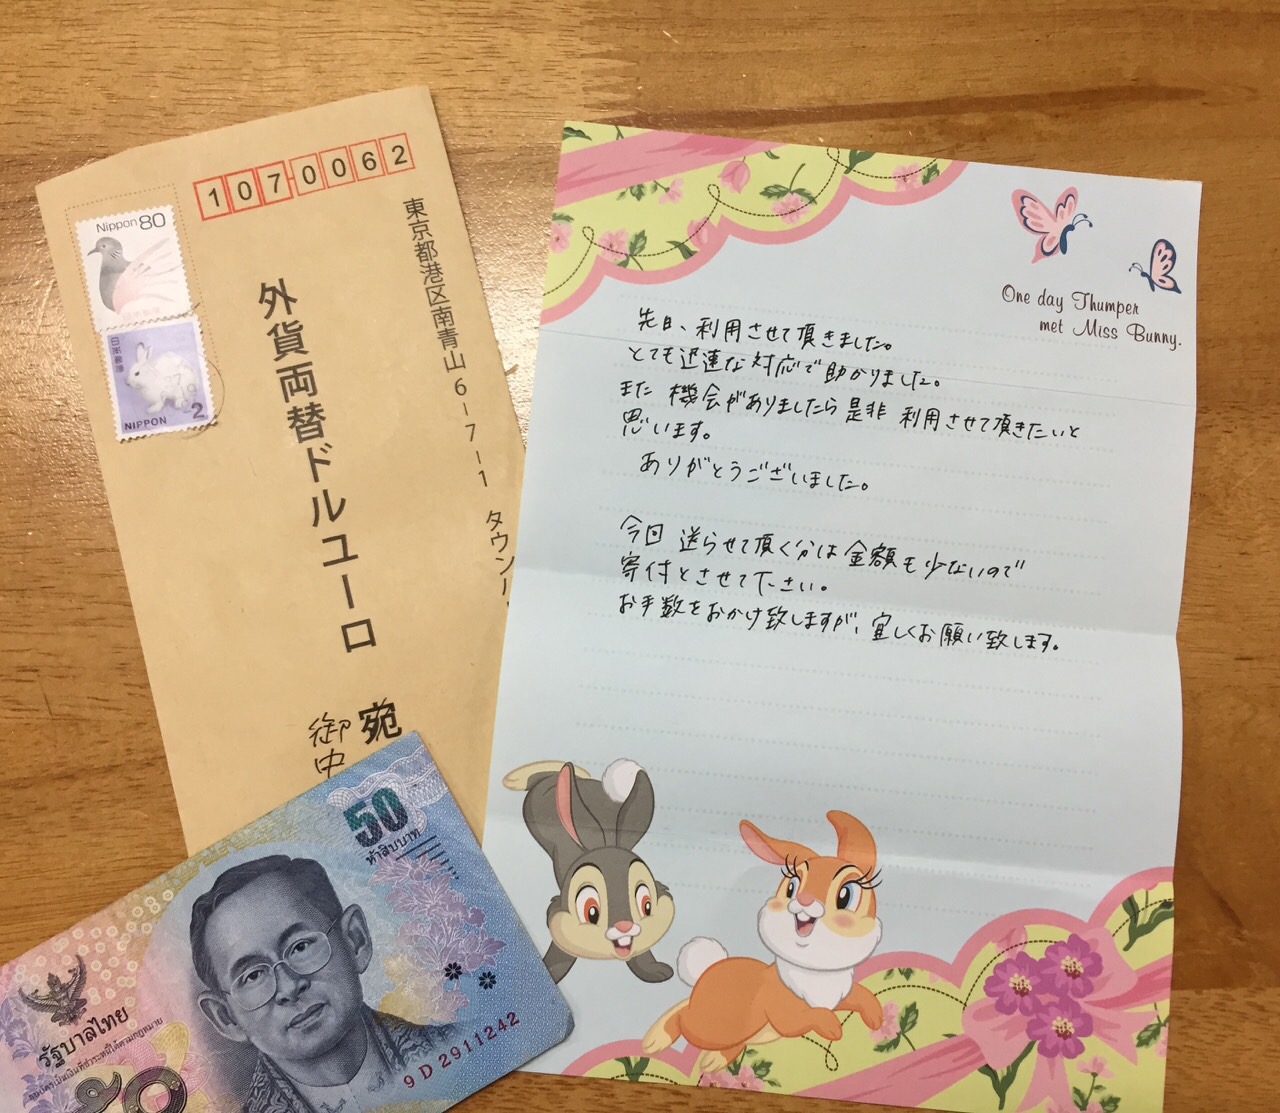 1070062
東京都港区南青山6-7-1 タウン
外貨両替ドルユーロ 宛
御中
Nippon 80
日本郵便
NIPPON 2
One day Thumper
met Miss Bunny.
先日、利用させて頂きました。
とても迅速な対応で助かりました。
また機会がありましたら是非利用させて頂きたいと
思います。
ありがとうございました。
今回送らせて頂く分は金額も少ないので
寄付とさせて下さい。
お手数をおかけ致しますが、宜しくお願い致します。
50
ห้าสิบบาท
รัฐบาลไทย
9D 2911242
50